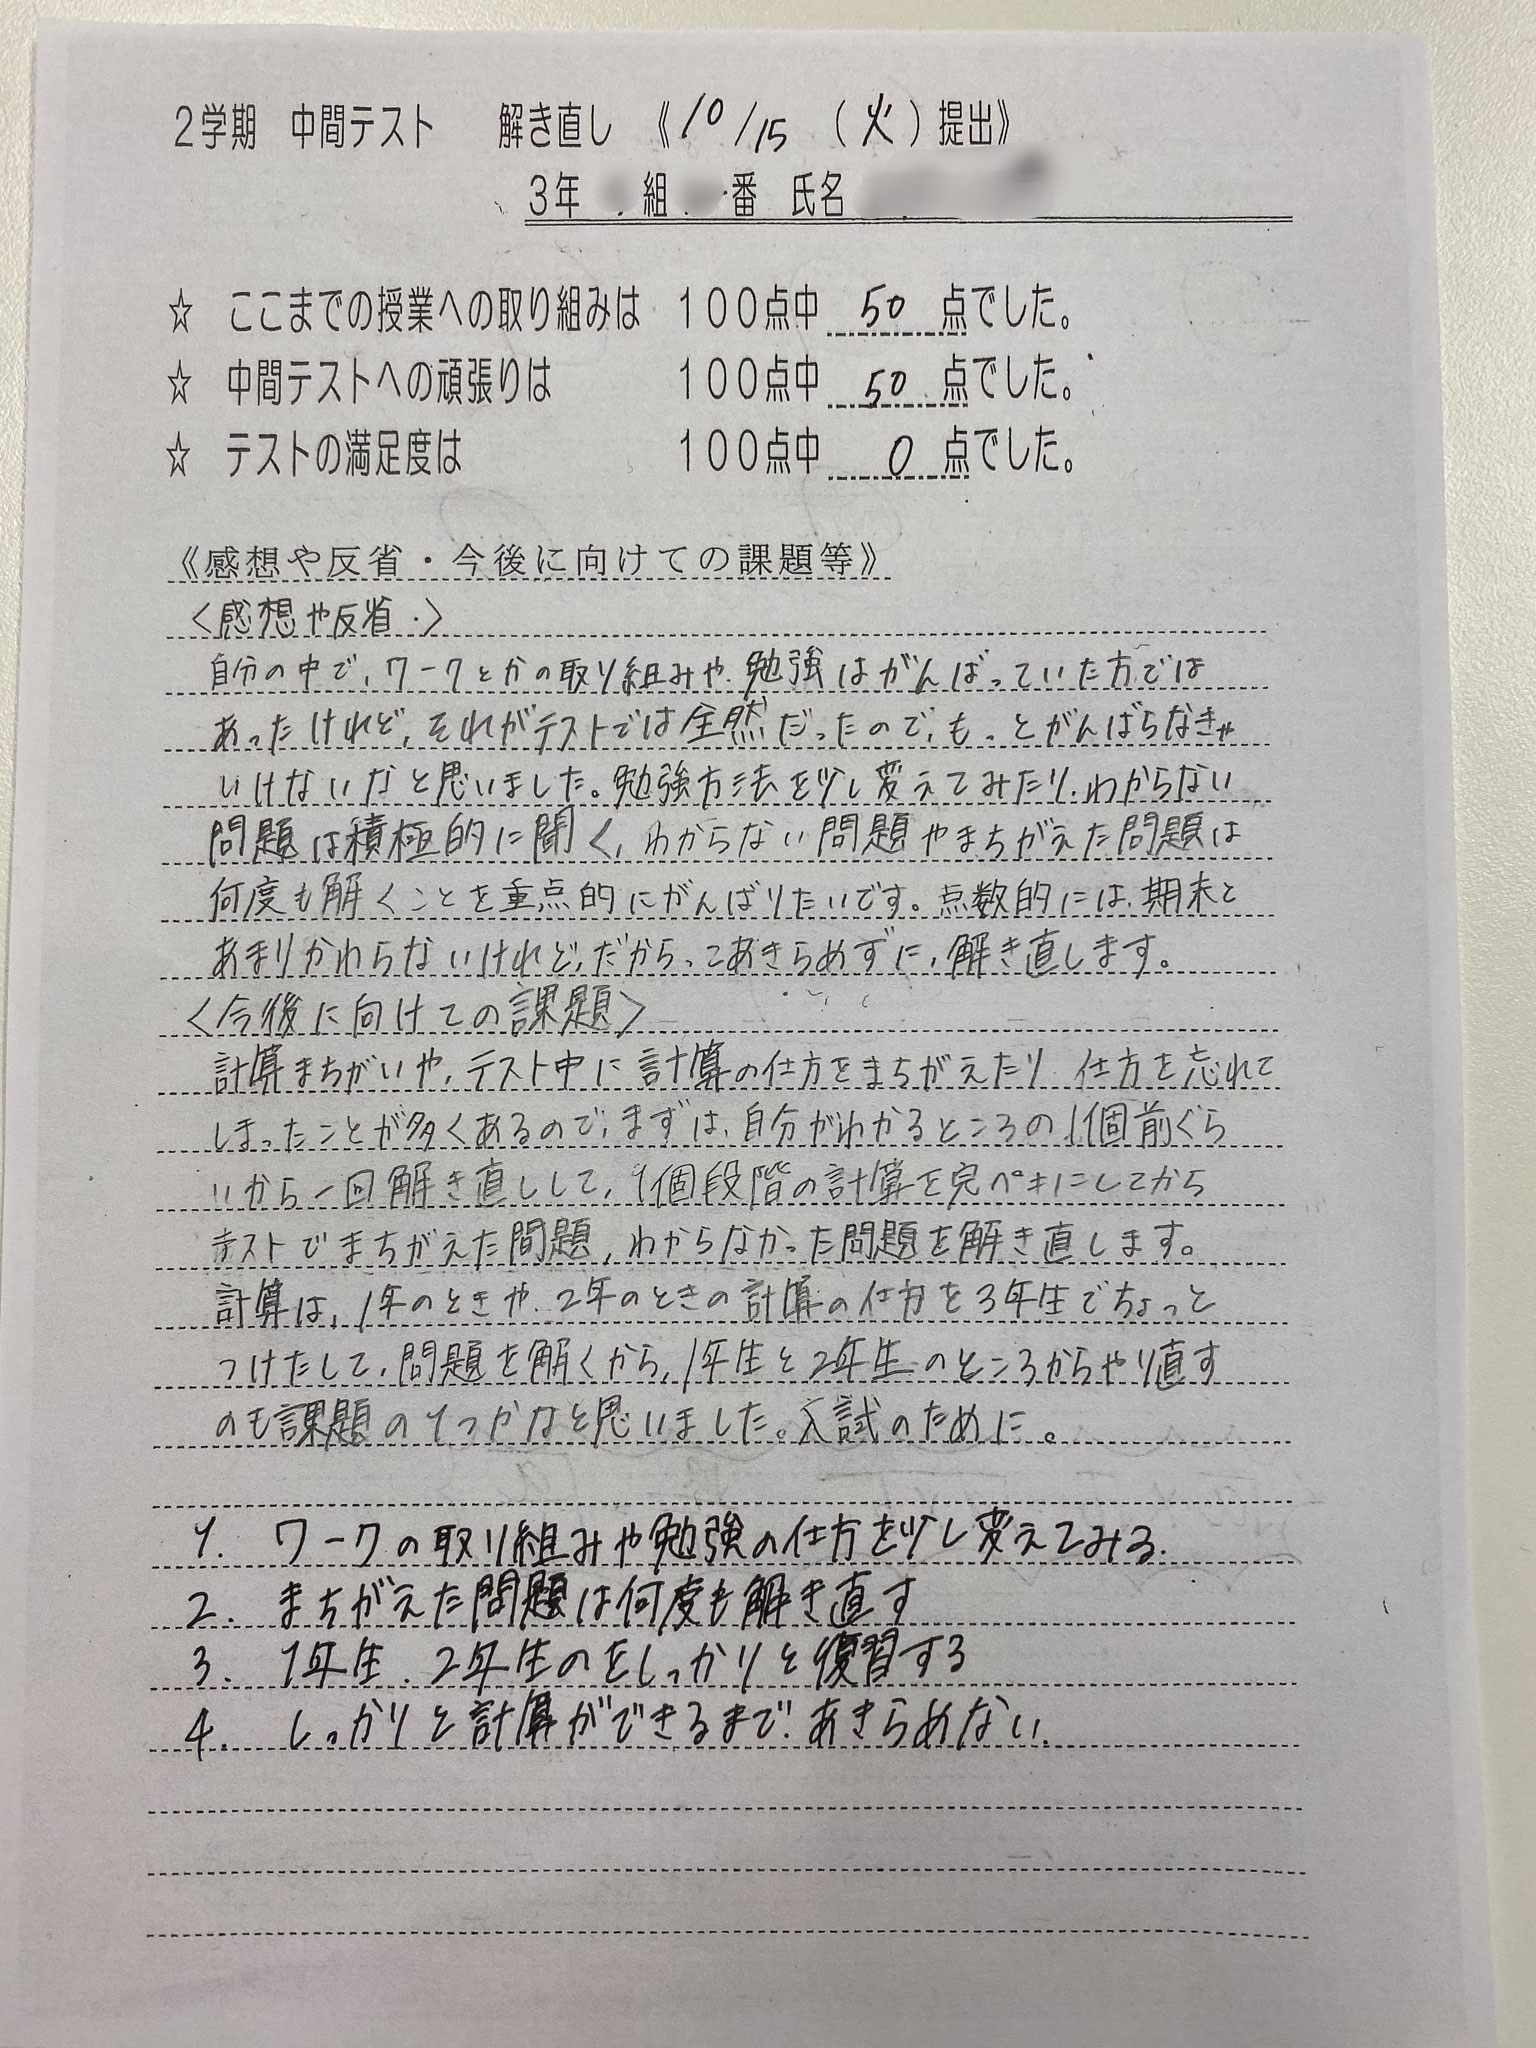 2学期 中間テスト 解き直し 《10/15(火)提出》
3年 組 番 氏名
☆ ここまでの授業への取り組みは 100点中 50 点でした。
☆ 中間テストへの頑張りは 100点中 50 点でした。
☆ テストの満足度は 100点中 0 点でした。
《感想や反省・今後に向けての課題等》
〈感想や反省・〉
自分の中で、ワークとかの取り組みや、勉強はがんばっていた方では
あったけれど、それがテストでは全然だったので、もっとがんばらなきゃ
いけないなと思いました。勉強方法を少し変えてみたり、わからない
問題は積極的に聞く、わからない問題やまちがえた問題は
何度も解くことを重点的にがんばりたいです。点数的には、期末と
あまりかわらないけれど、だからってあきらめずに、解き直します。
〈今後に向けての課題〉
計算まちがいや、テスト中に計算の仕方をまちがえたり、仕方を忘れて
しまったことが多くあるので、まずは、自分がわかるところの1個前ぐら
いから一回解き直しして、1個段階の計算を完ペキにしてから
テストでまちがえた問題、わからなかった問題を解き直します。
計算は、1年のときや、2年のときの計算の仕方を3年生でちょっと
つけたして、問題を解くから、1年生と2年生のところからやり直す
のも課題の1つかなと思いました。入試のために。
1. ワークの取り組みや勉強の仕方を少し変えてみる.
2. まちがえた問題は何度も解き直す
3. 1年生、2年生のをしっかりと復習する
4. しっかりと計算ができるまで、あきらめない.